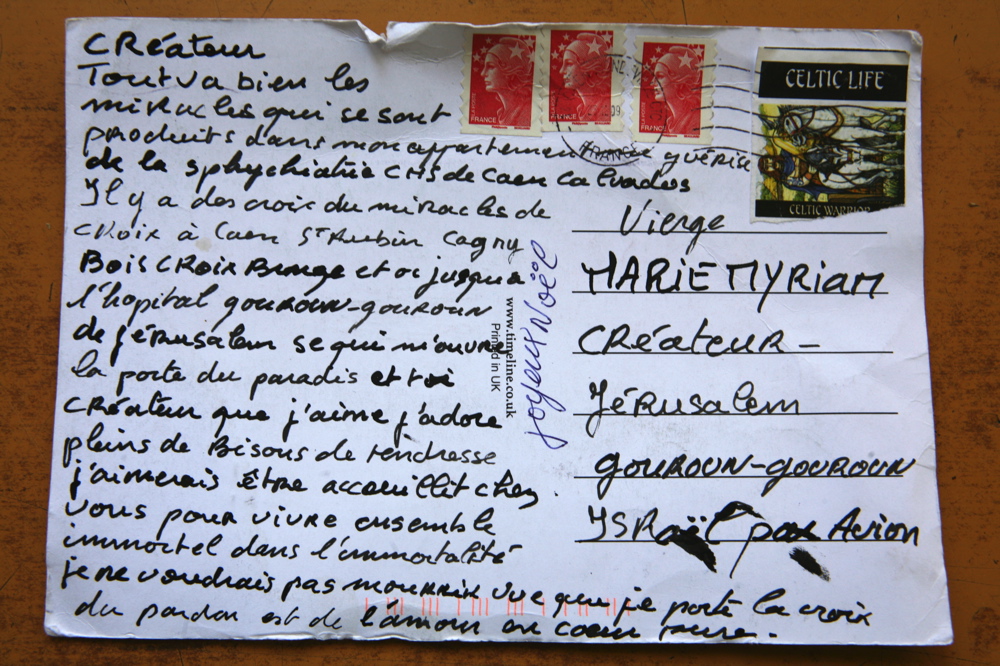 CRéateur
Tout va bien les
miracles qui se sont
produits dans mon appartement guérise
de la sphychiatrie CMS de Caen Calvados
Il y a des croix du miracles de
CRoix à Caen St Aubin Cagny
Bois CROix et jusqu'à
l'hopital gouroun-gouroun
de jérusalem se qui m'ouvre
la porte du paradis et toi
CRéateur que j'aime j'adore
pleins de Bisous de tendresse
j'aimerais être accueillit chez
vous pour vivre ensemble
immortel dans l'immortalité
je ne voudrais pas mourrir vue que je porte la croix
du pardon est de l'amour en coeur pure.
FRANCE
FRANCE
FRANCE
09
FRANCE
CELTIC LIFE
CELTIC WARRIOR
joyeux Noël
www.timeline.co.uk
Printed in UK
Vierge
MARiE MYRiam
CRéateur -
Jérusalem
gouroun-gouroun
ISRaël par Avion